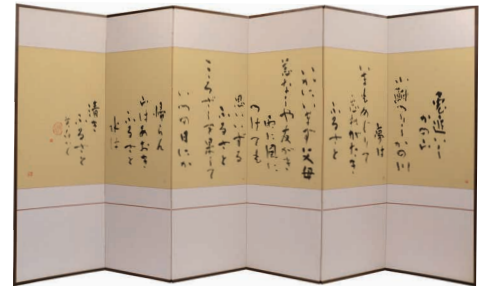 兎追いし
かの山
小鮒つりしかの川
夢は
いまもめぐりて
忘れがたき
ふるさと
いかにいます父母
恙なしや友がき
雨に風に
つけても
思いいずる
ふるさと
こころざしを果して
いつの日にか
帰らん
山はあおき
ふるさと
水は
清き
ふるさと